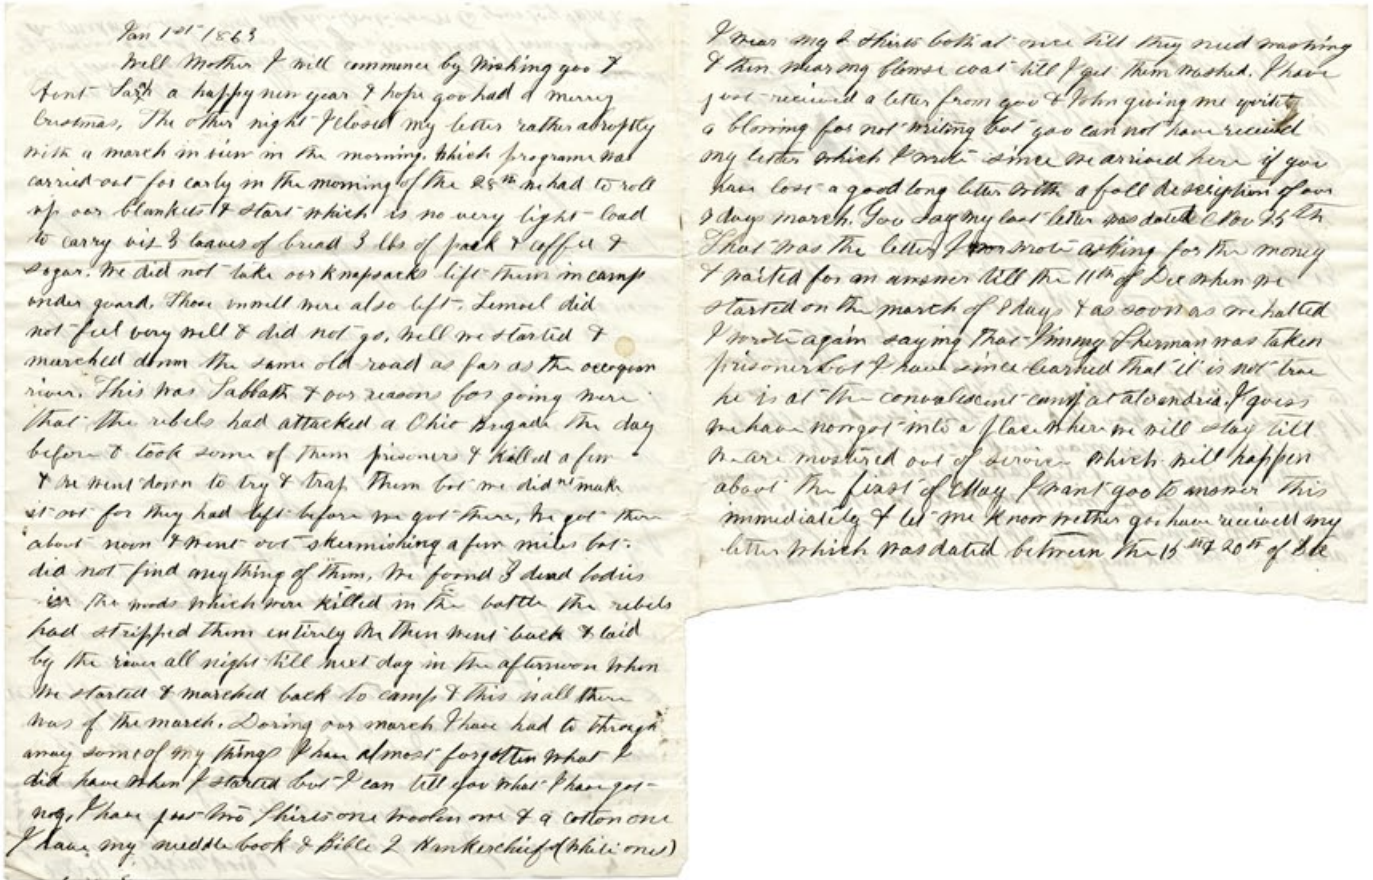 Jan 1st 1863
Well Mother I will commence by wishing you &
Aunt Sarh a happy new year & hope you had a merry
Cristmas. The other night I closed my letter rather abruptly
with a march in view in the morning. Which programe was
carried out for early in the morning of the 28th we had to roll
up our blankets & start which is no very light load
to carry viz 3 loaves of bread 3 lbs of pork & coffee &
sugar. We did not take our knapsacks left them in camp
under guard. Those unwell were also left. Lemuel did
not feel very well & did not go. Well we started &
marched down the same old road as far as the occoquon
river. This was Sabbath & our reasons for going were
that the rebels had attacked a Ohio Brigade the day
before & took some of them prisoners & killed a few
& we went down to try & trap them but we did nt make
it out for they had left before we got there. We got there
about noon & went out skermishing a few miles but
did not find anything of them. We found 3 dead bodies
in the woods which were killed in the battle the rebels
had stripped them entirely We then went back & laid
by the river all night till next day in the afternoon when
we started & marched back to camp & this is all there
was of the march. During our march I have had to through
away some of my things I have almost forgotten what I
did have when I started but I can tell you what I have got
now, I have just two Shirts one woolen one & a cotton one
I have my needle book & Bible 2 Hankerchiefs (white ones)
I wear my 2 shirts both at once till they need washing
& then wear my blouse coat till I get them washed. I have
just recieved a letter from you & John giving me quite
a blowing for not writing but you can not have recieved
my letter which I wrote since we arrived here if you
have lost a good long letter with a full description of our
8 days march. You say my last letter was dated Nov 25th
That was the letter I wrote asking for the money
& waited for an answer till the 11th of Dec when we
started on the march of 8 days & as soon as we halted
I wrote again saying that Jimmy Sherman was taken
prisoner but I have since learned that it is not true
he is at the convalescent camp at alexndria. I guess
we have now got into a place where we will stay till
we are mustered out of service which will happen
about the first of May I want you to answer this
immediately & let me know wether you have recieved my
letter which was dated between the 15th & 20th of Dec